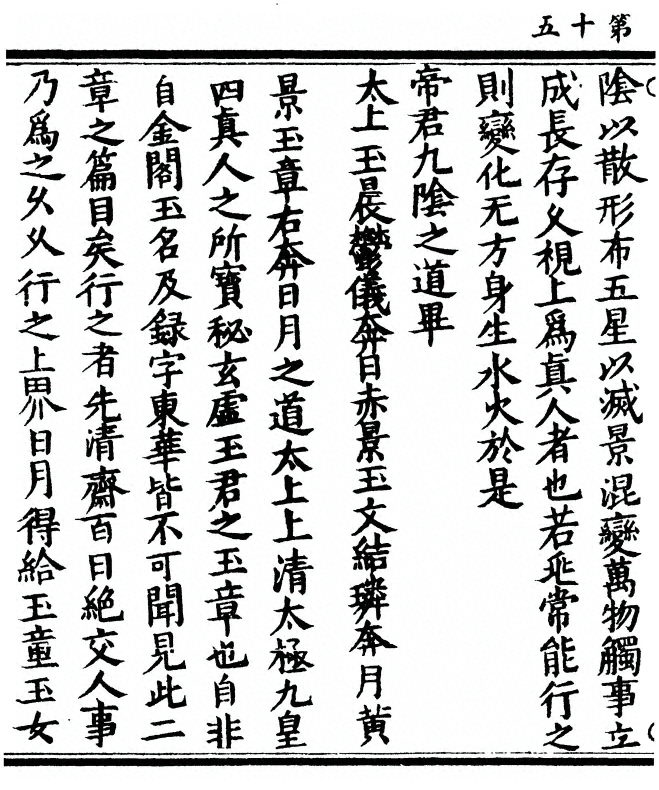 第十五
陰以散形布五星以滅景混變萬物觸事立
成長存久視上爲眞人者也若非常能行之
則變化无方身生水火於是
帝君九陰之道畢
太上玉晨鬱儀奔日赤景玉文結璘奔月黃
景玉章右奔日月之道太上上清太極九皇
四真人之所寶秘玄虛玉君之玉章也自非
自金閣玉名及録字東華皆不可聞見此二
章之篇目矣行之者先清齋百日絶交人事
乃爲之久久行之上界日月得給玉童玉女